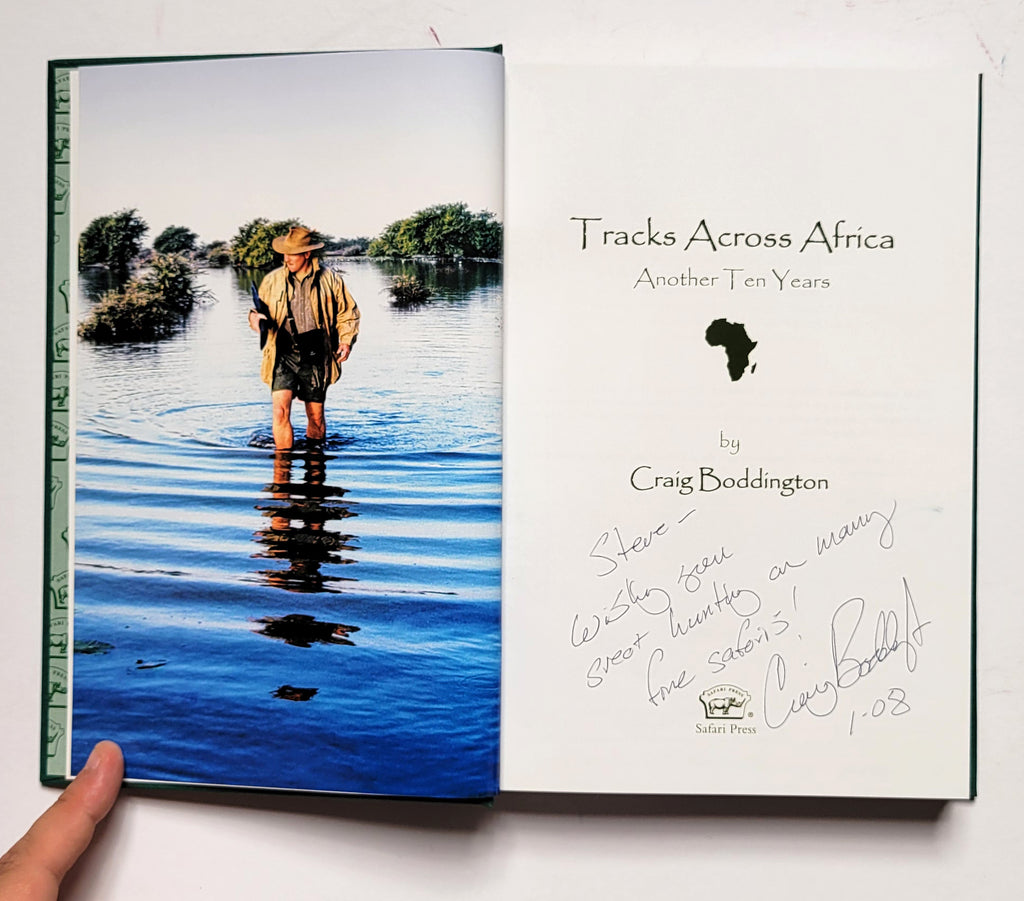 Tracks Across Africa
Another Ten Years
by
Craig Boddington
Steve-
Wishing you
great hunting on many
fine safaris!
Craig Boddington
1-08
SAFARI PRESS
®
Safari Press